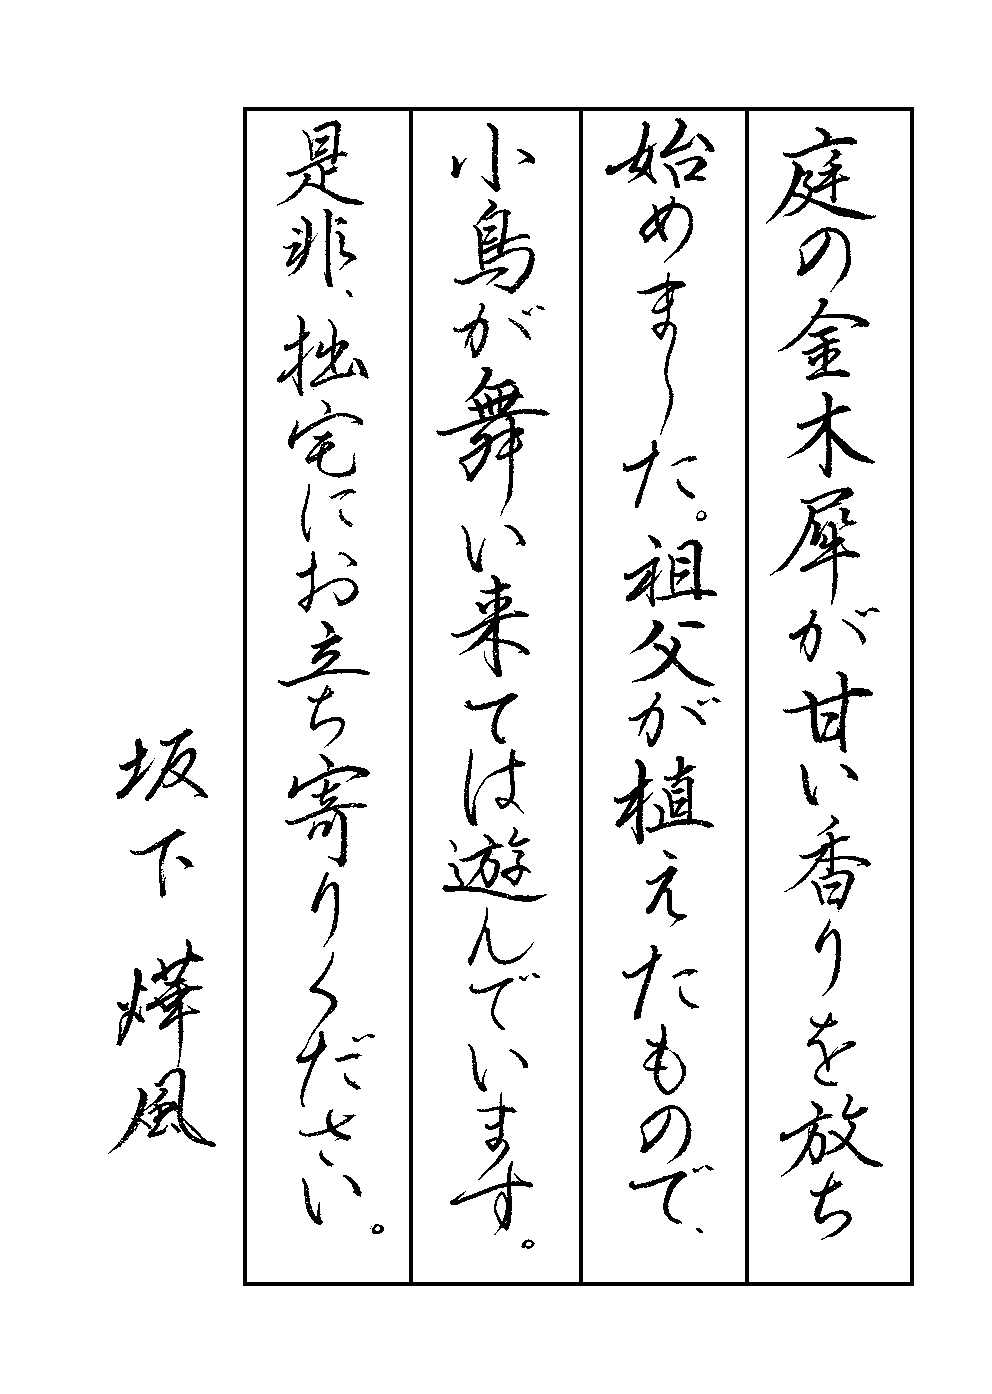 庭の金木犀が甘い香りを放ち
始めました。祖父が植えたもので、
小鳥が舞い来ては遊んでいます。
是非、拙宅にお立ち寄りください。
坂下 燁風